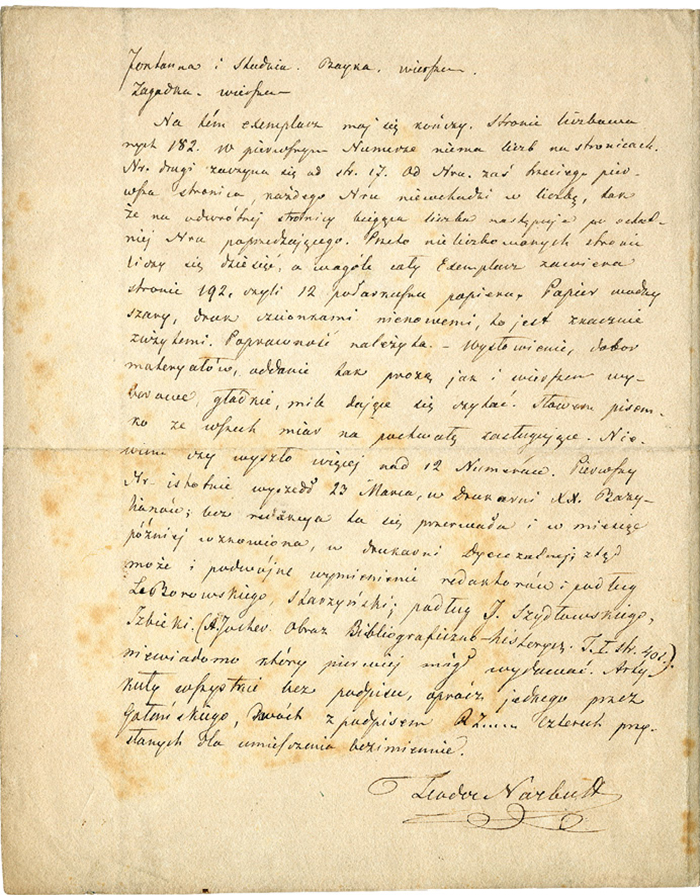 Fontanna i Studnia. Bayka. wierszem.
Zagadka. wierszem
Na tém exemplarz moj się kończy. Stronic liczbowa-
nych 182. w pierwszym Numerze niema liczb na stronicach.
Nr. drugi zaczyna się od str. 17. Od Nru. zaś trzeciego pier-
wsza stronica, każdego Nru niewchodzi w liczbę, tak
że na odwrótnej stronicy bieżąca liczba następuje po ostat-
niej Nru poprzedzającego. Przeto nieliczbowanych stronic
liczy się dziesięć, a wogóle cały Exemplarz zawiera
stronic 192, czyli 12 półarkuszy papieru. Papier wodny
szary, druk czcionkami nienowemi, to jest znacznie
zużytemi. Poprawność należyta. – Wysłowienie, dobor
materyałów, oddanie tak prozą jak i wierszem wy-
borowe, gładkie, mile dające się czytać. Słowem pisem-
ko ze wszech miar na pochwałę zasługujące. Nie-
wiem czy wyszło więcej nad 12 Numerów. Pierwszy
Nr. istotnie wyszedł 23 Marca, w Drukarni XX. Bazy-
lianów; lecz redakcya ta się przerwała i w miesiąc
później wznowiona, w drukarni Dyecezalnej; ztąd
może i podwójne wymienienie redaktorów: podług
Le Borowskiego, Skarżyński; podług J. Szydłowskiego,
Izbicki. (A. Jocher. Obraz Bibliograficzno-historycz. T. I. str. 401.)
niewiadomo który pierwiej mógł wydawać. Arty-
kuły wszystkie bez podpisu, oprócz jednego przez
Gołońskiego, Dwóch z podpisem czterech przy-
słanych dla umieszczenia bezimiennie.
Teodor Narbutt